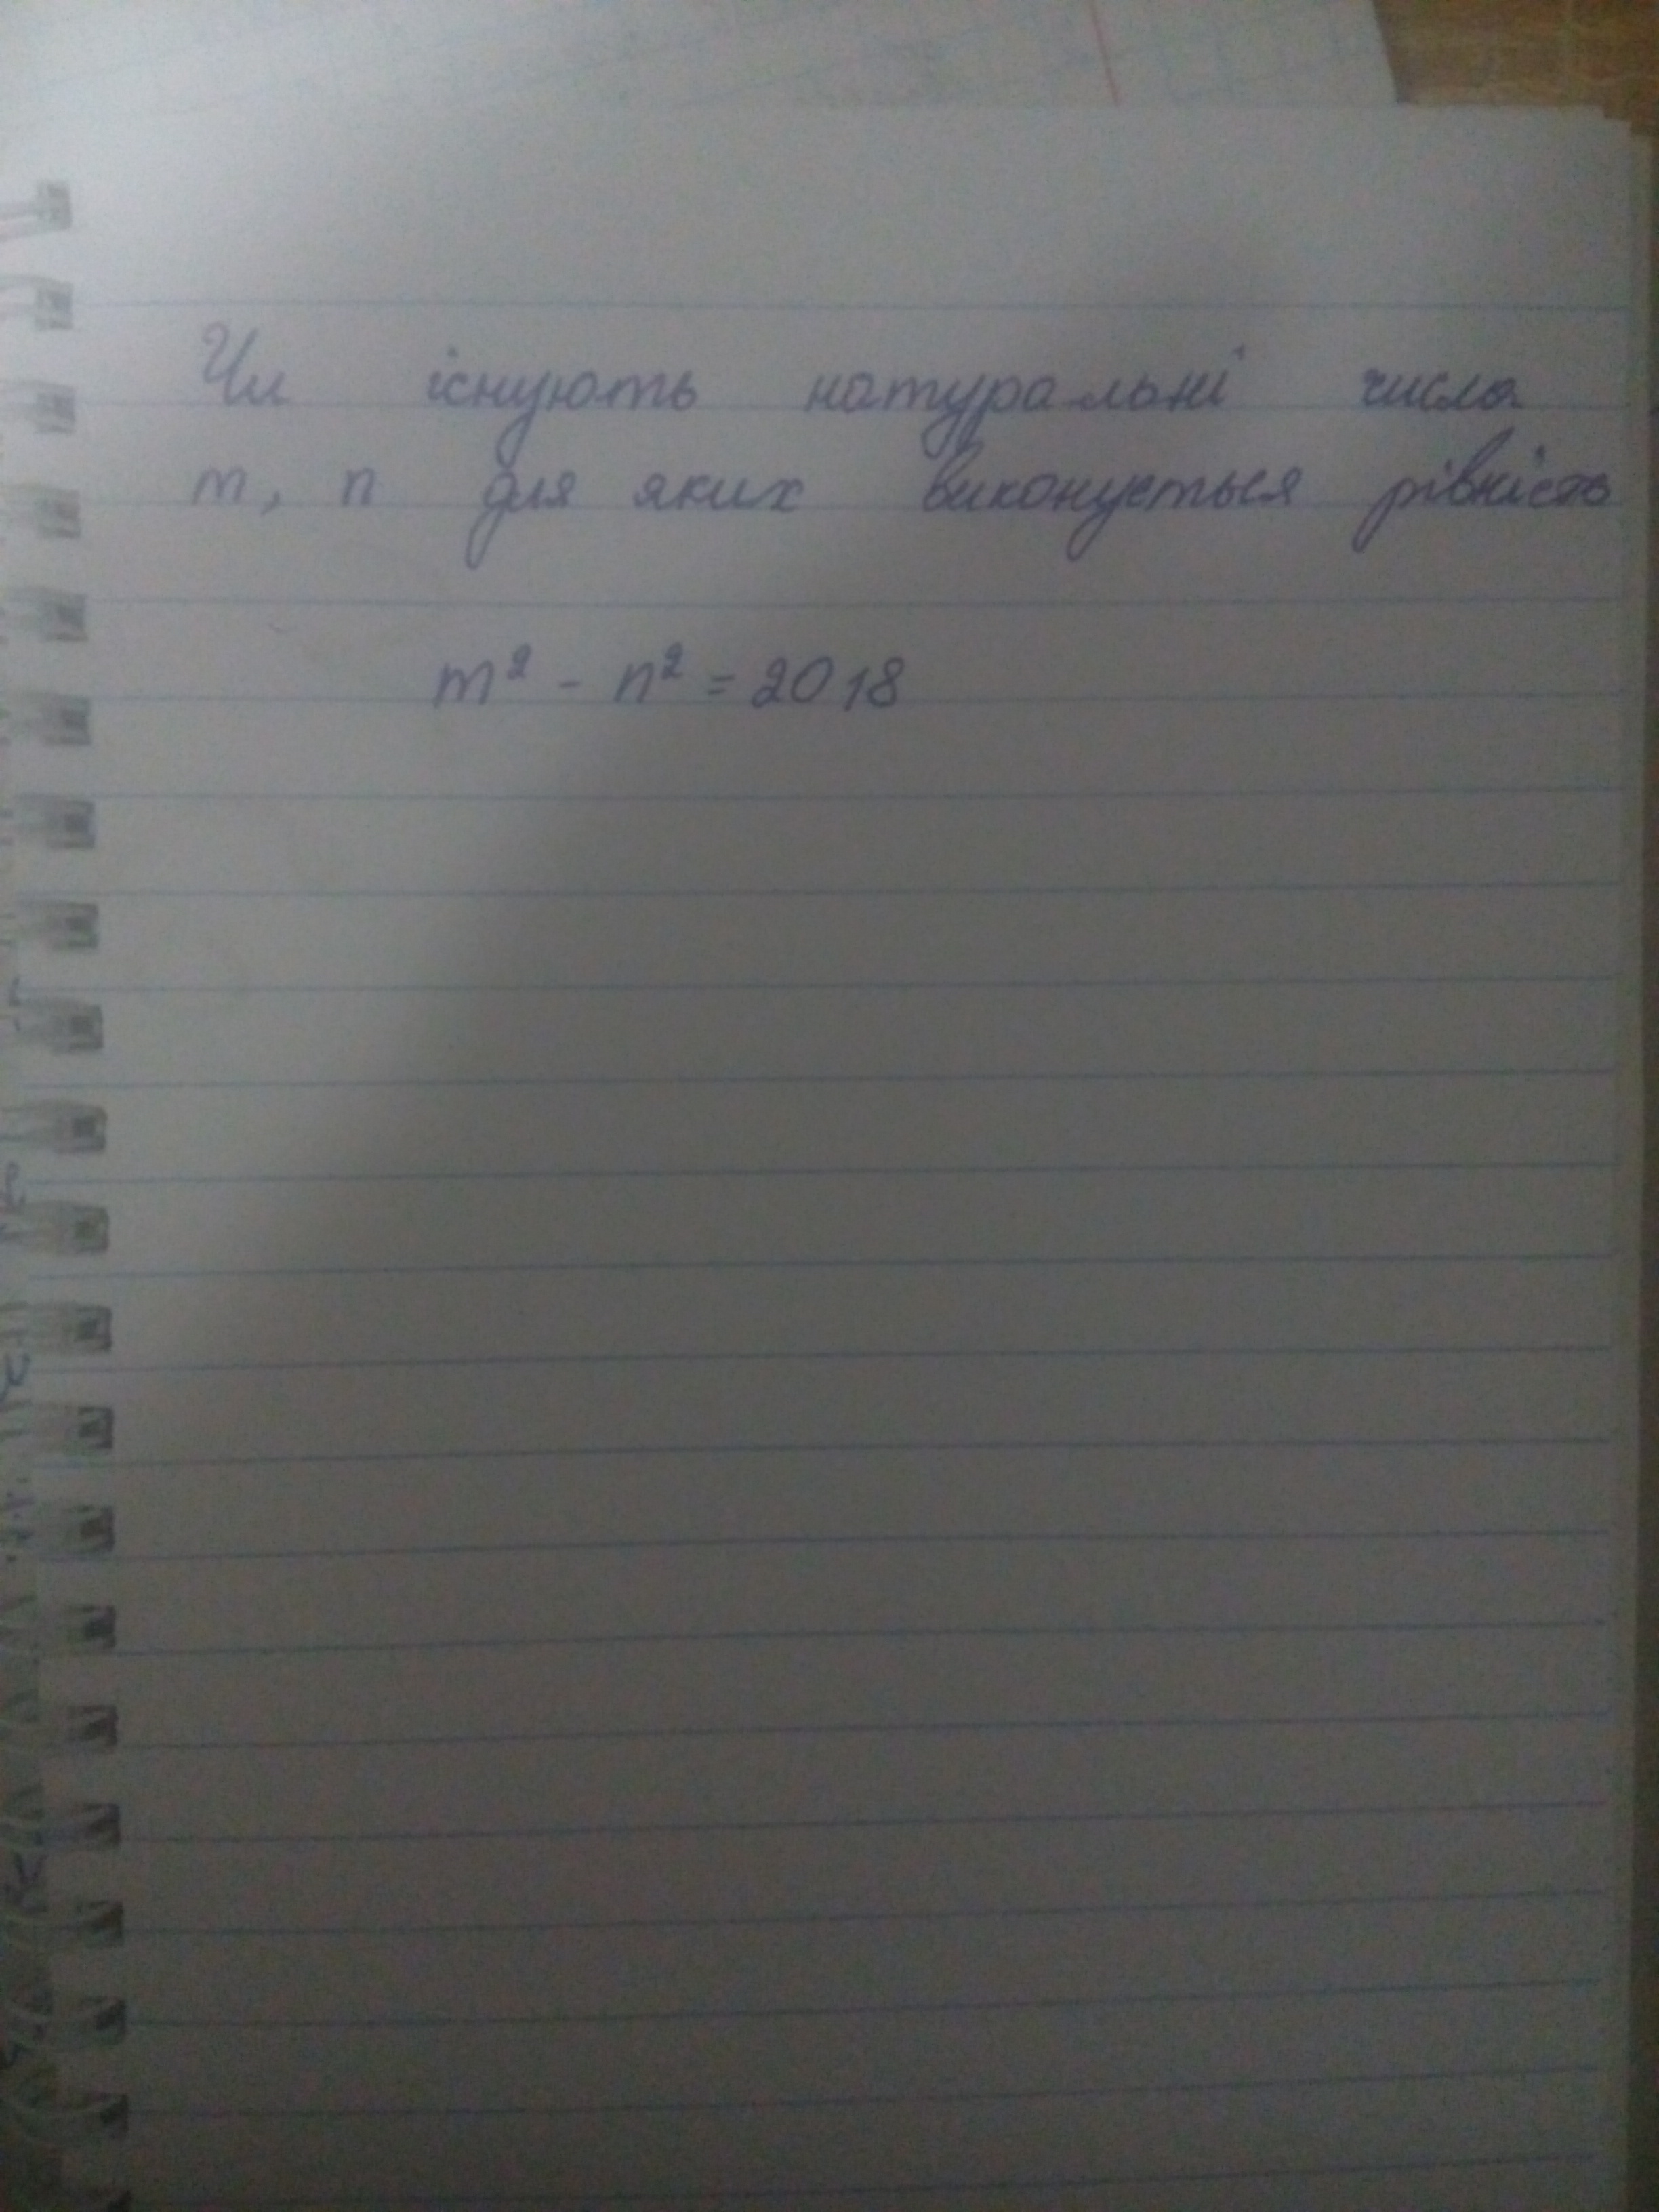 Чи існують натуральні числа
m, n для яких виконується рівність
m² - n² = 2018